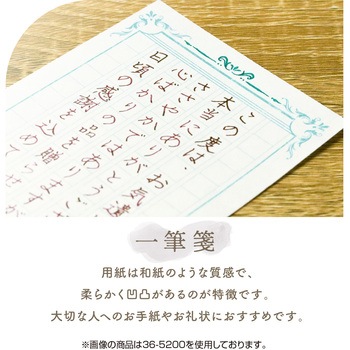 この度は、お気遣
本当にありがとう
ささやかではありますが
心ばかりの品を贈
日頃の感謝を込め
一筆箋
用紙は和紙のような質感で、
柔らかく凹凸があるのが特徴です。
大切な人へのお手紙やお礼状におすすめです。
※画像の商品は36-5200を使用しております。